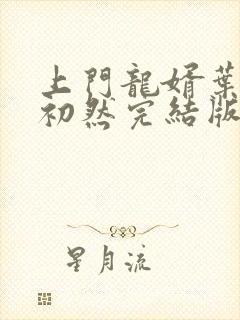 上門龍婿葉
初然完結版
星月流